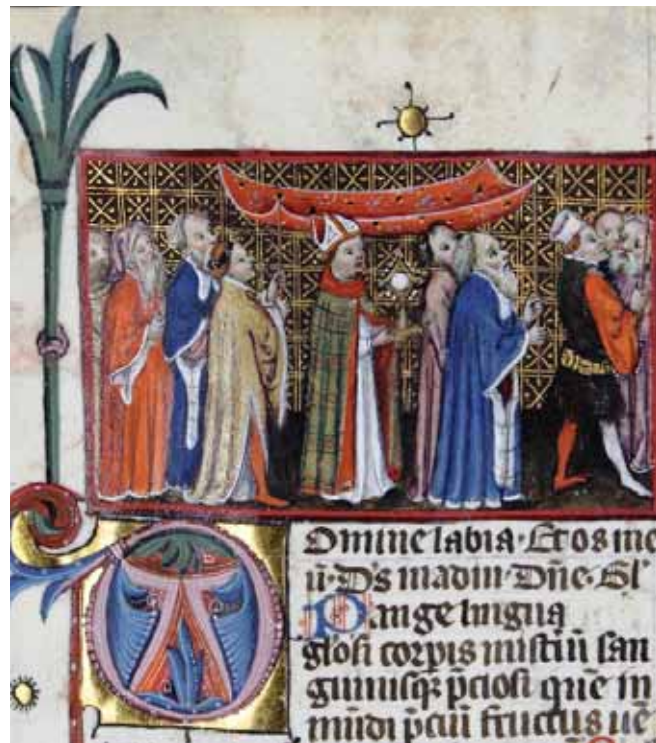 Domine labia· Et os me
ū· Ds̄ in adiu· Dn̄e· Gl'
Pange lingua
glosi corpis mistiū san
guinisqꝫ p̄ciosi quē in
mūdi p̄ciū fructus uē